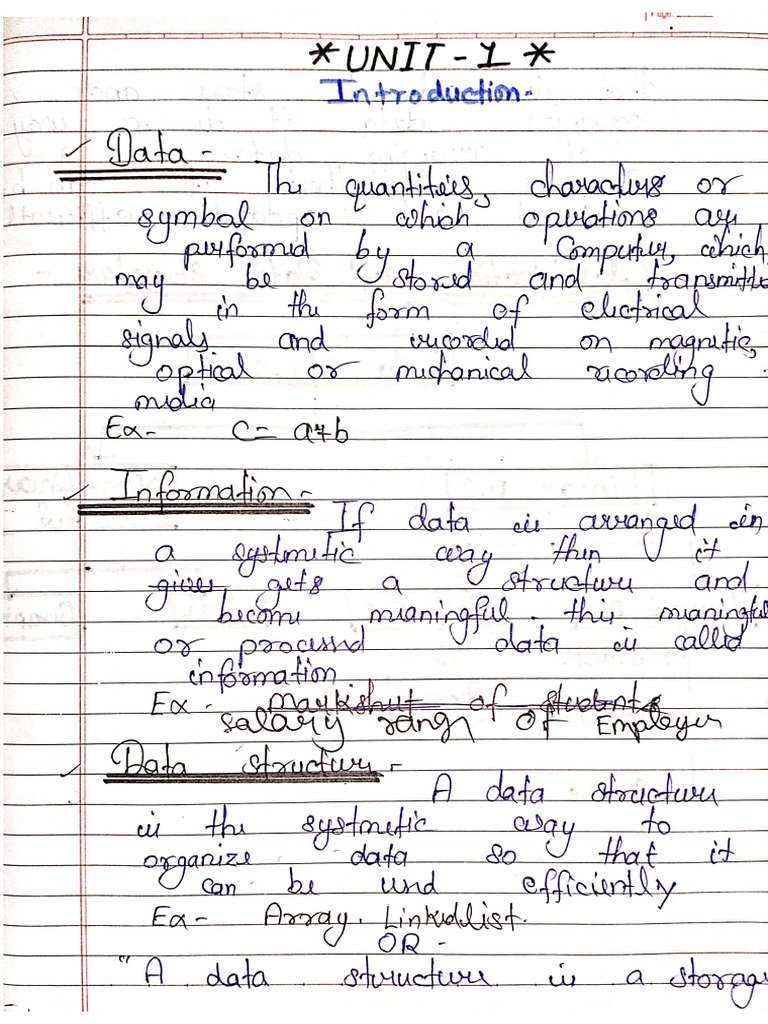 Page:
*UNIT-1*
Introduction-
Data -
The quantities, characters or
symbol on which operations are
performed by a Computer, which
may be stored and transmitte
in the form of electrical
signals and recorded on magnetic,
optical or mechanical racording
media
Ex- C = a+b
Information -
If data is arranged in
a systmetic way then it
gives gets a structure and
become meaningful. this meaningful
or processed data is called
information
Ex - marksheet of students
salary range of Employer
Data structure -
A data structure
is the systmetic way to
organize data so that it
can be used efficiently
Ex- Array. Linkedlist.
OR -
"A data structure is a storage